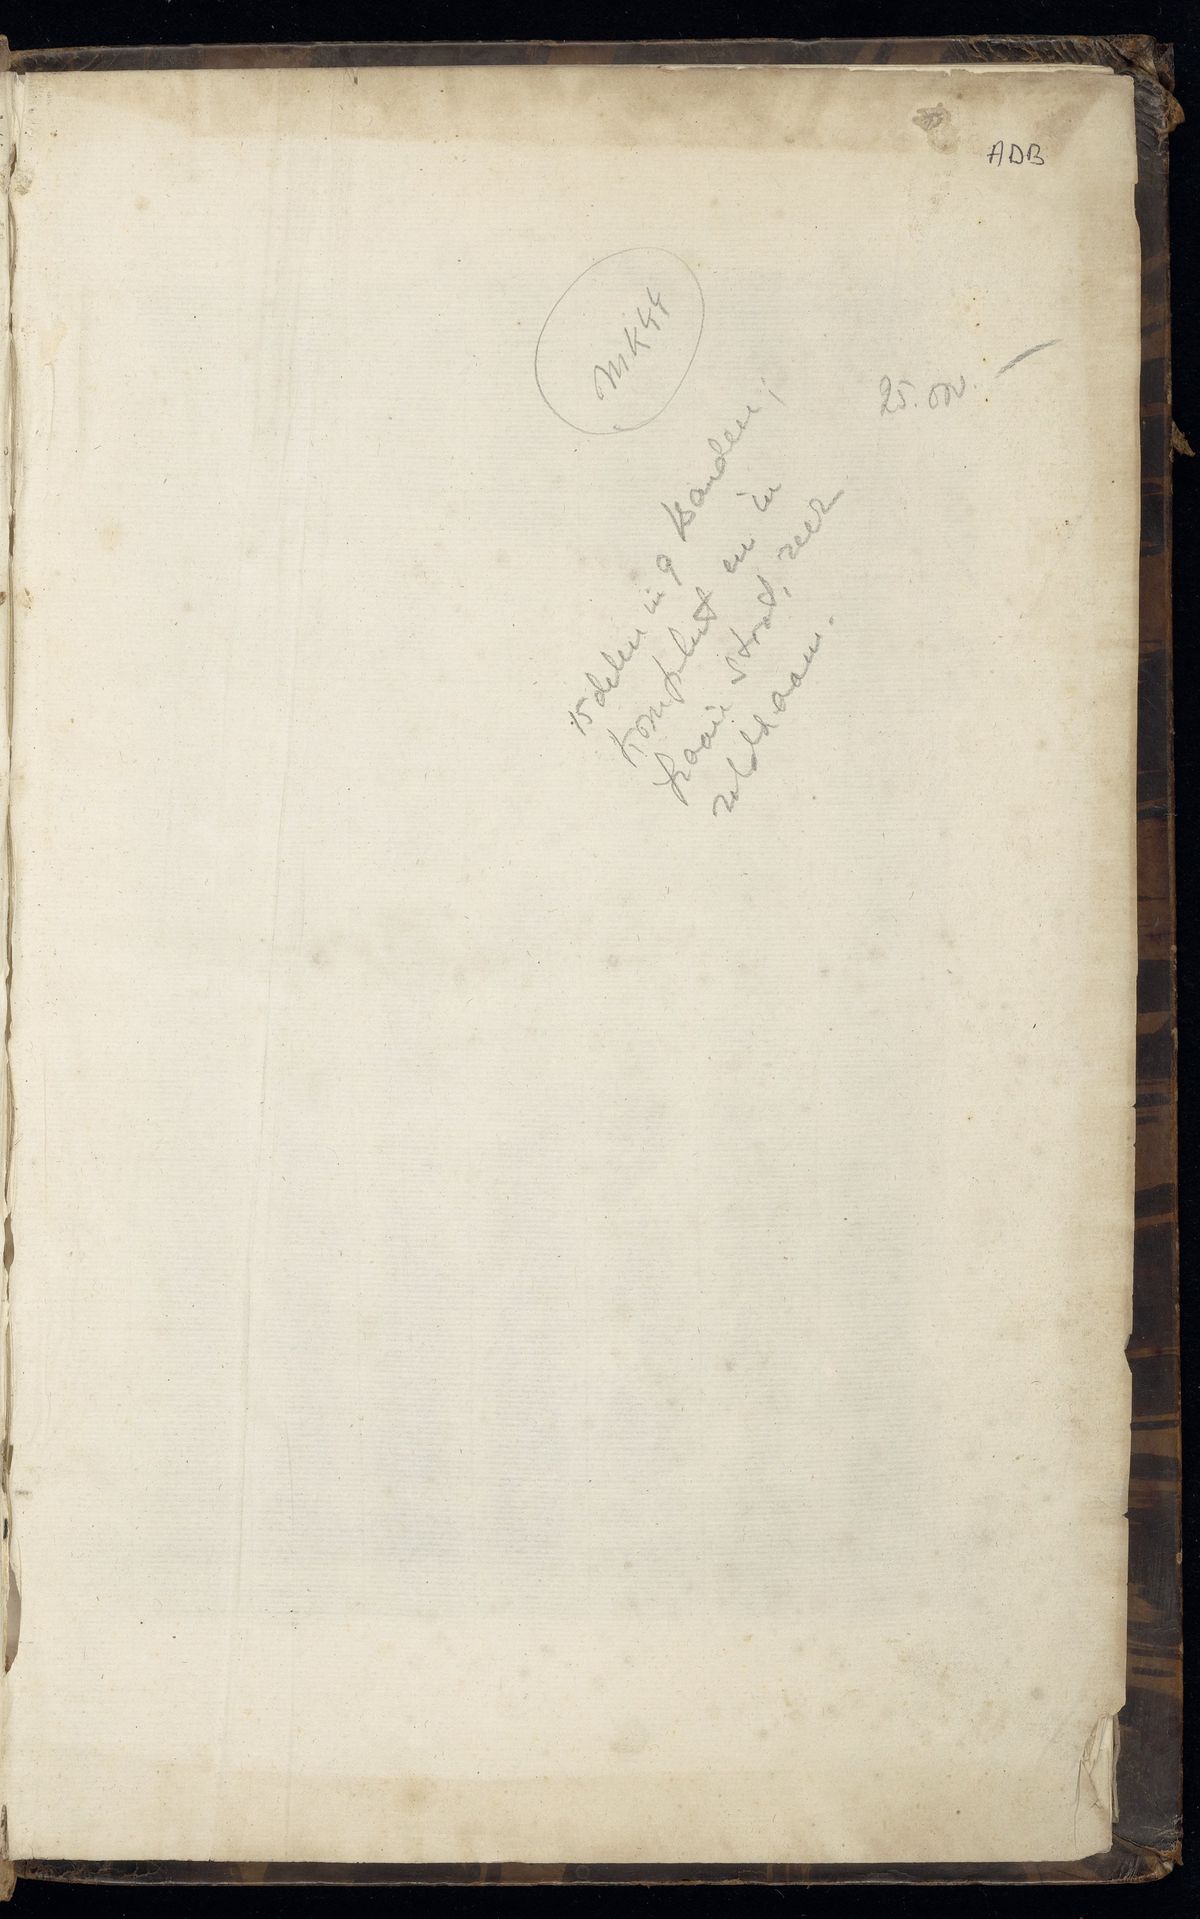 ADB
25.
15 delen in 9 Banden;
Kompleet en in
fraaie staat, zeer
zeldzaam.